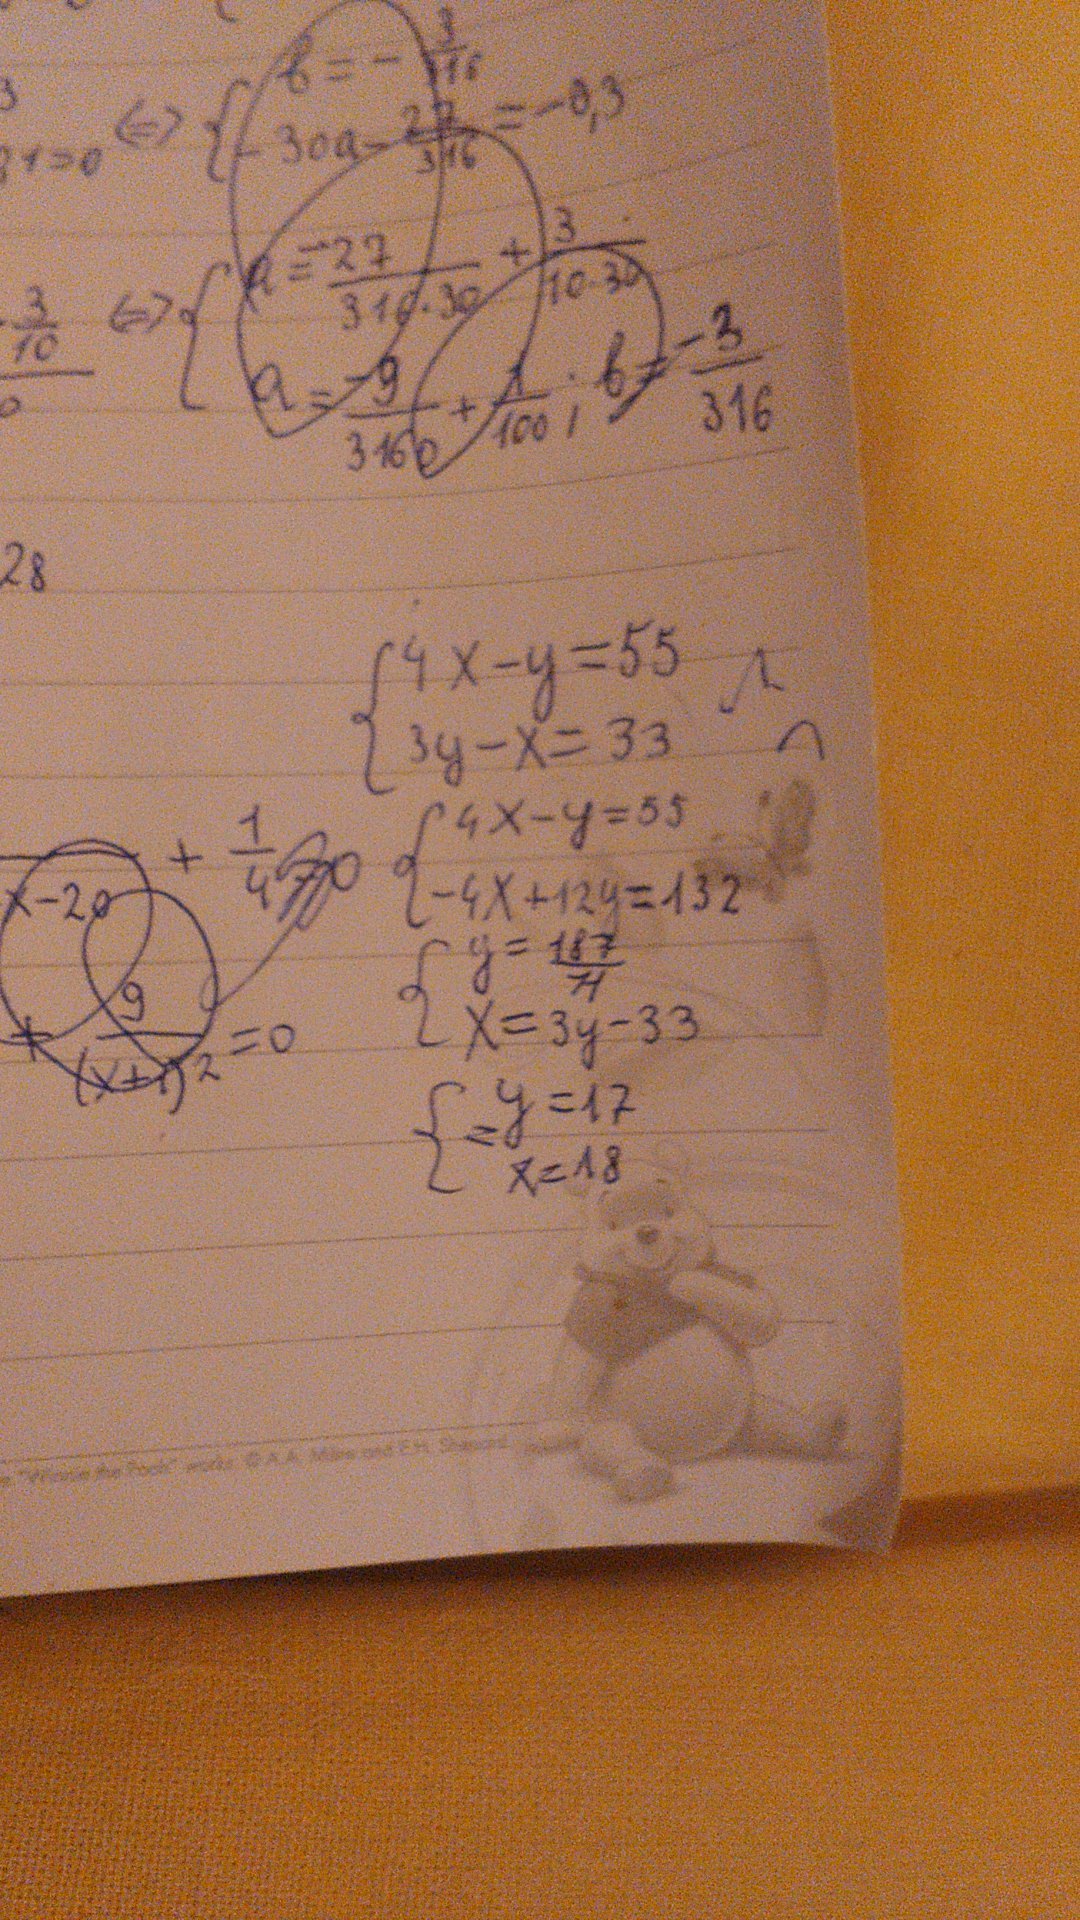 b = - 3/316
3
81=0 <=> { -30a - 27/316 = -0,3
3/10 <=> { a = -27/(316·30) + 3/(10·30)
a = -9/3160 + 1/100 ; b = -3/316
28
{ 4x-y=55
3y-x=33
{ 4x-y=55
-4x+12y=132
x-20 + 1/4
{ y = 187/11
x=3y-33
+ 9/(x+1)² = 0
{ = y=17
x=18
"Winnie the Pooh" works © A.A. Milne and E.H. Shepard